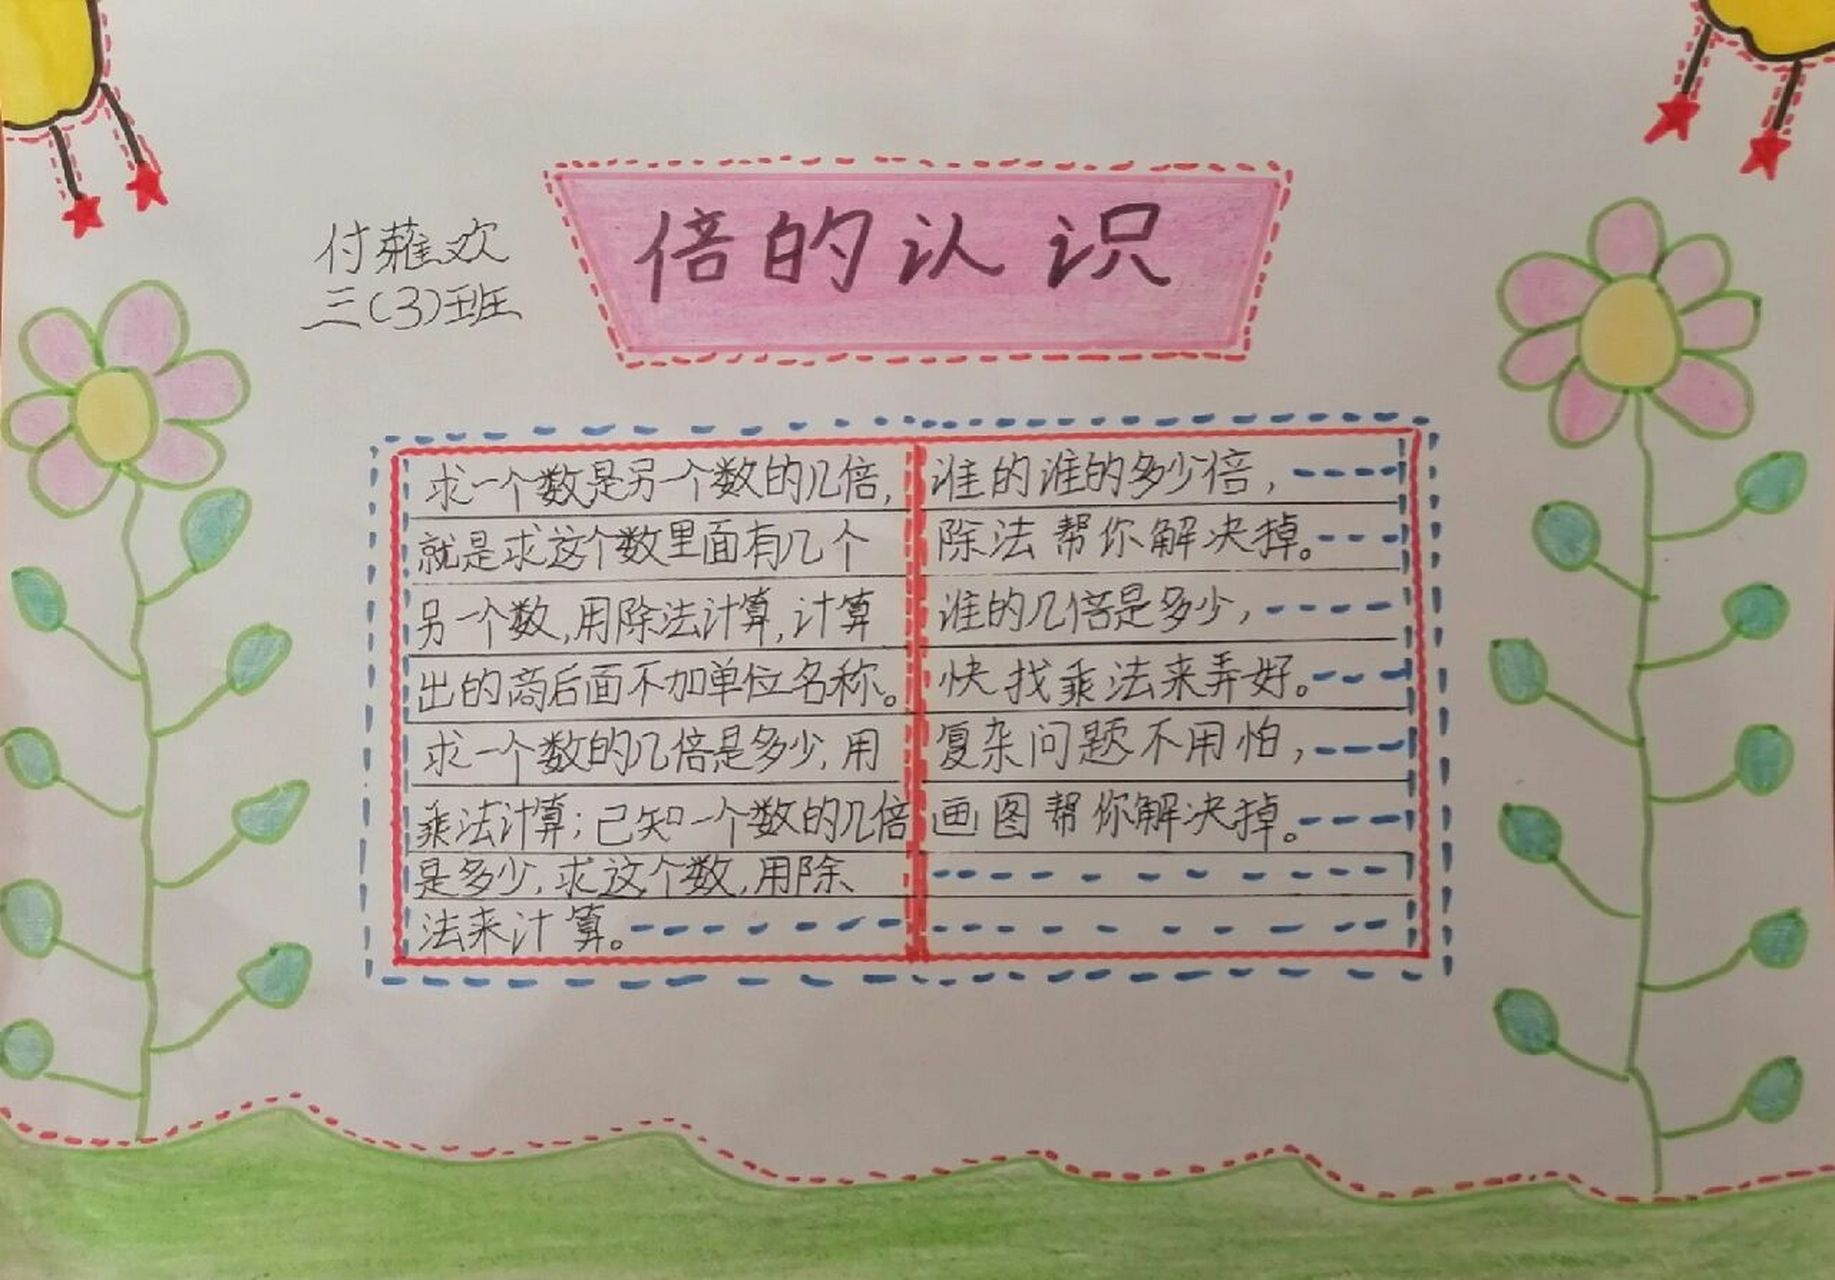 倍的认识
付蕥欢
三(3)班
求一个数是另一个数的几倍,
就是求这个数里面有几个
另一个数,用除法计算,计算
出的商后面不加单位名称。
求一个数的几倍是多少,用
乘法计算;已知一个数的几倍
是多少,求这个数,用除
法来计算。
谁的谁的多少倍,
除法帮你解决掉。
谁的几倍是多少,
快找乘法来弄好。
复杂问题不用怕,
画图帮你解决掉。